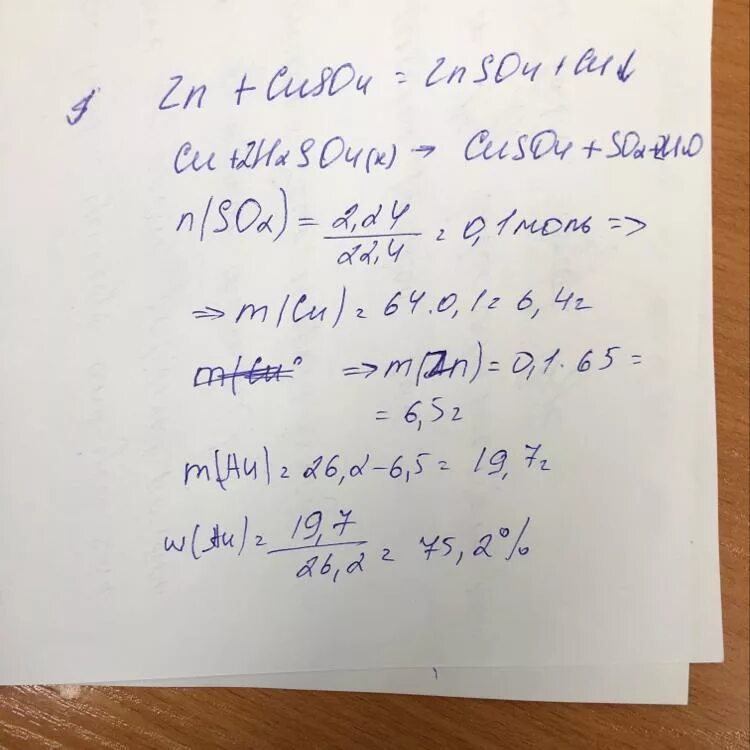 Zn + CuSO4 = ZnSO4 + Cu↓
Cu + 2H2SO4(к) → CuSO4 + SO2 + 2H2O
n(SO2) = 2,24 / 22,4 = 0,1 моль =>
=> m(Cu) = 64·0,1 = 6,4г
m(Cu) => m(Zn) = 0,1·65 =
= 6,5г
m(Au) = 26,2-6,5 = 19,7г
w(Au) = 19,7 / 26,2 = 75,2%